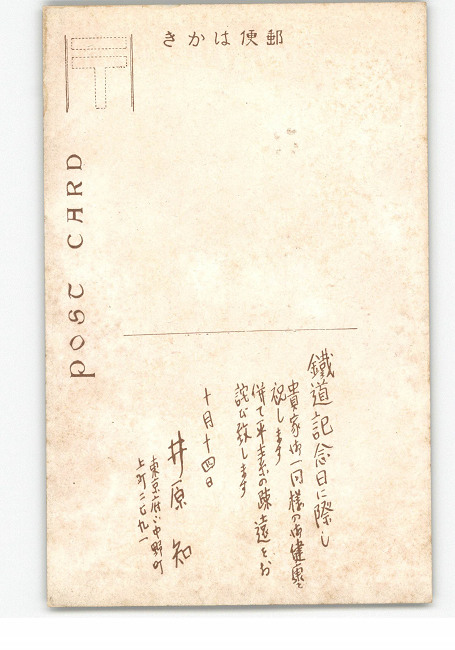 きかは便郵
POST CARD
鐵道記念日に際し
貴家御一同様の御健康を
祝します
併て平素の疎遠をお
詫び致します
十月十四日
井原 知
東京府下中野町
上町二七九一